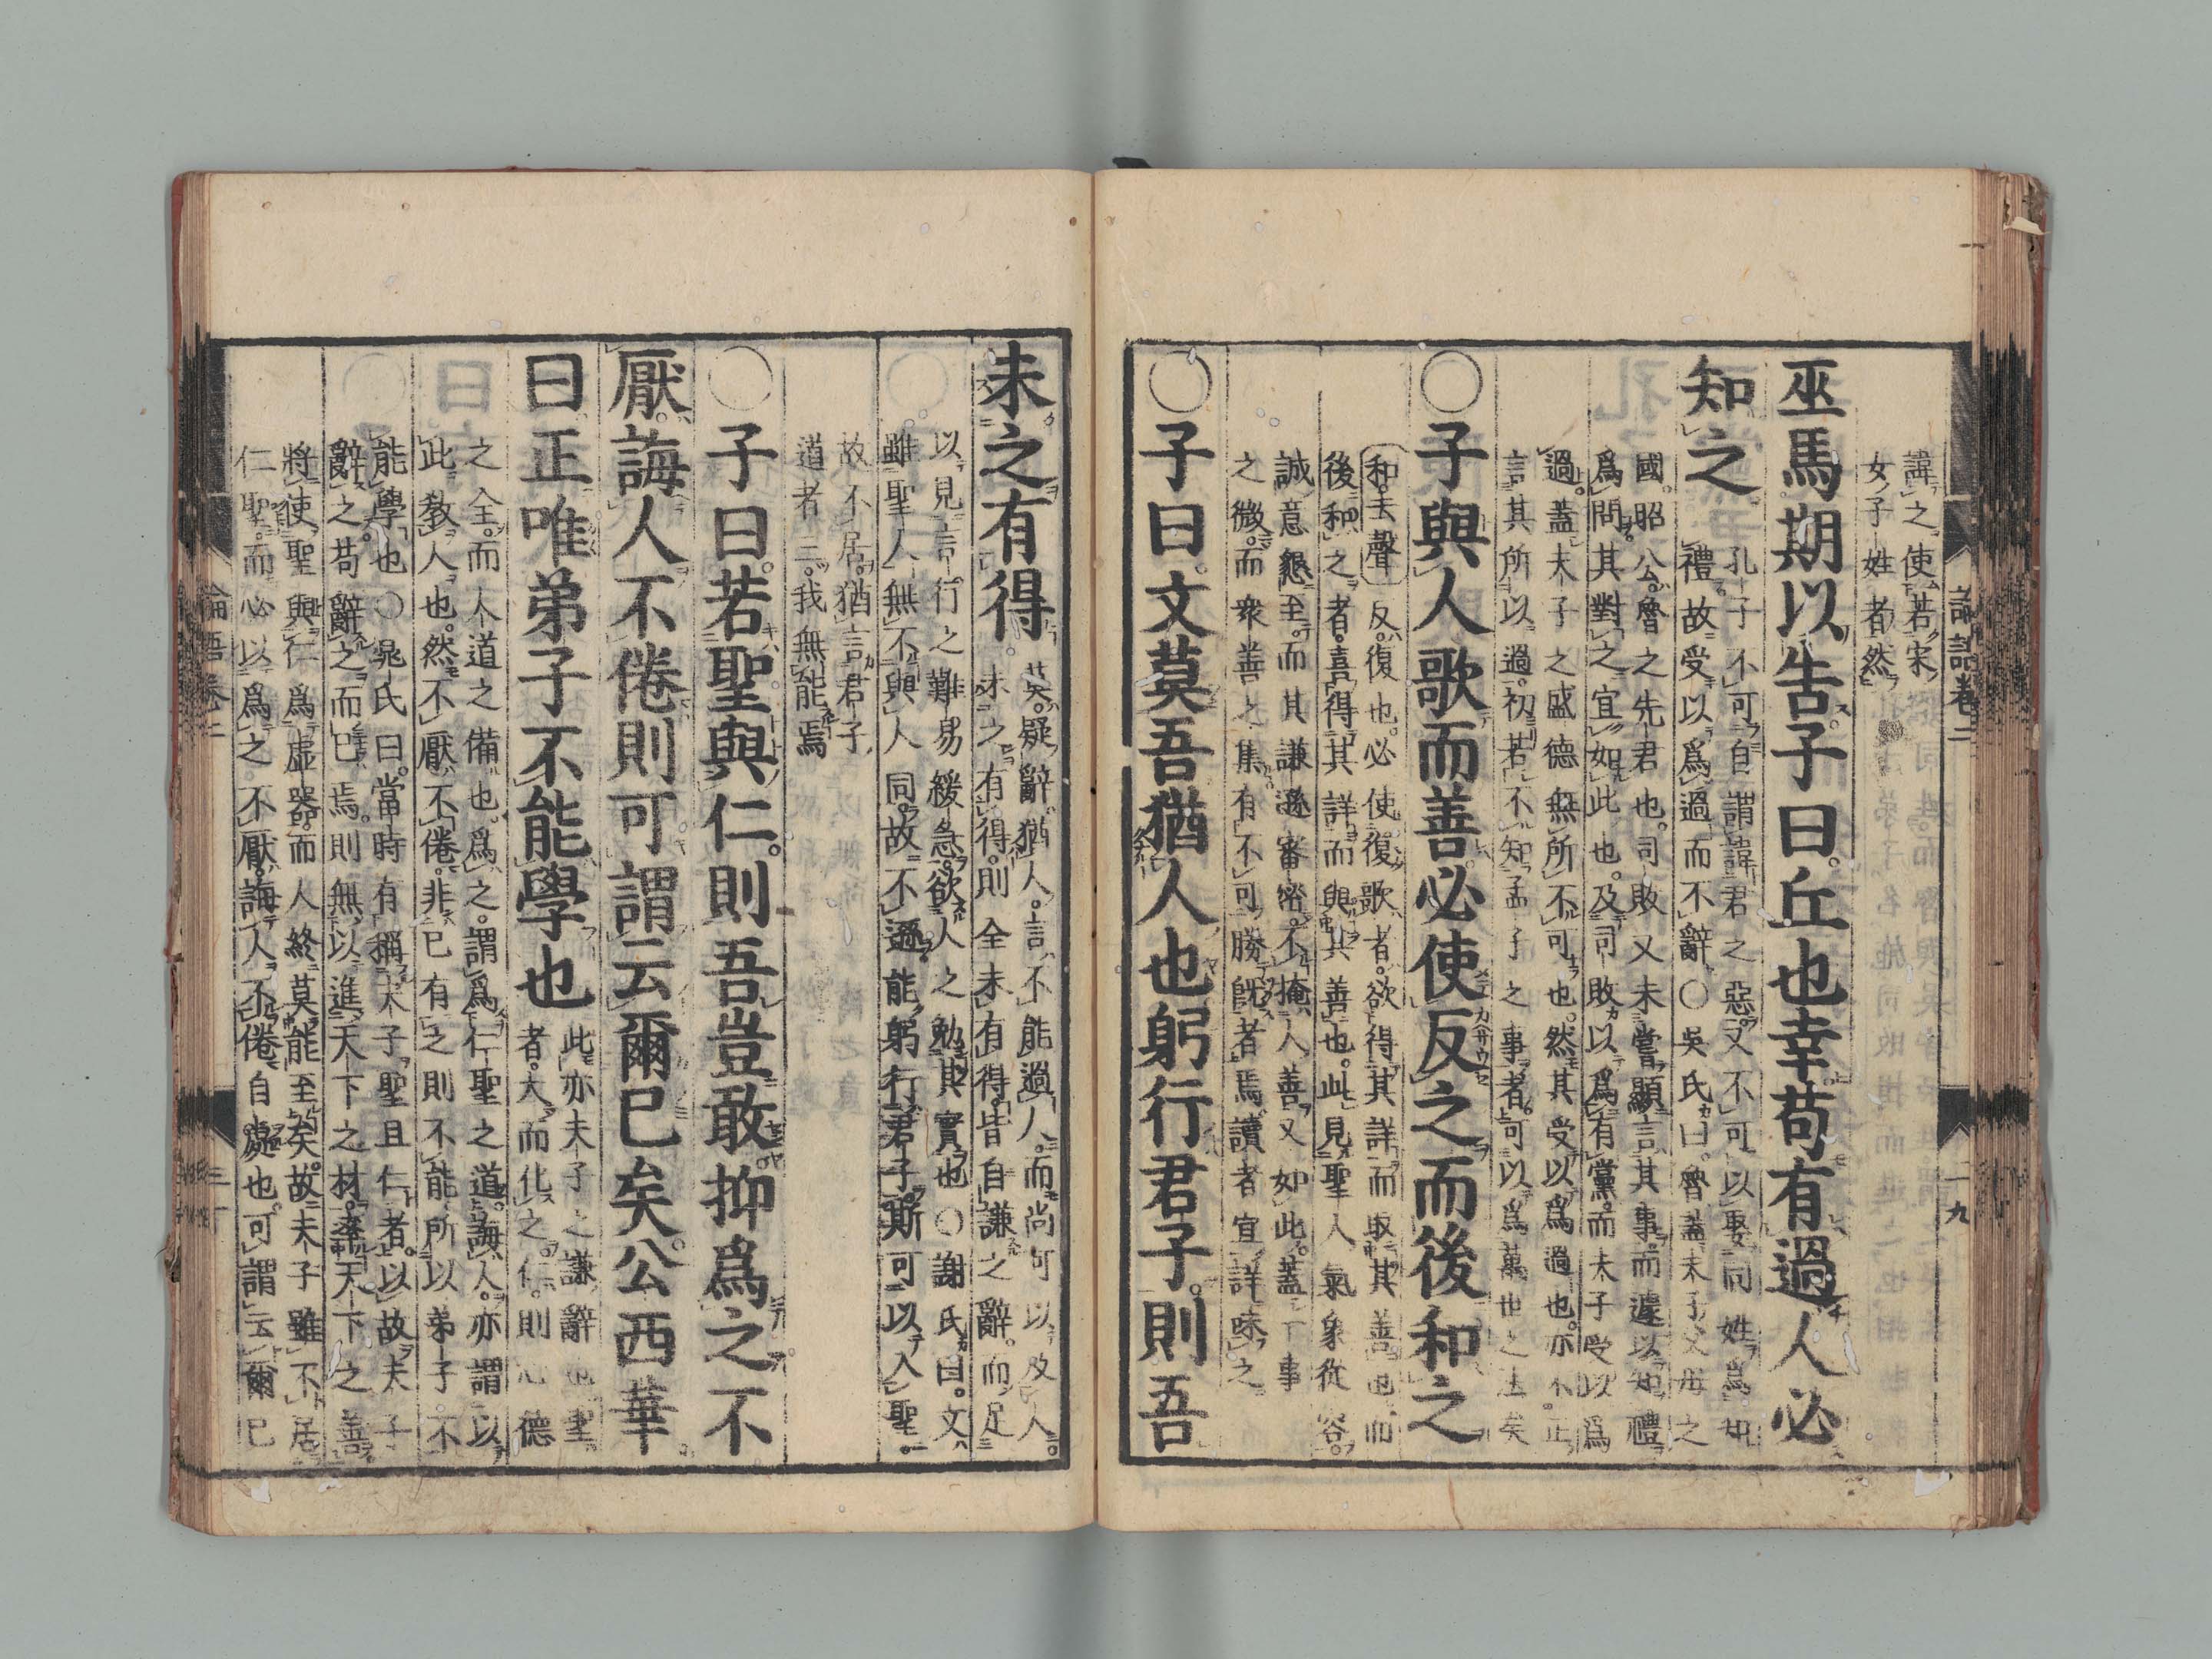 諱之使若宋
女子姓者然
巫馬期以告子曰丘也幸苟有過人必
知之
孔子不可自謂諱君之惡又不可以娶同姓爲知
禮故受以爲過而不辭○吳氏曰魯蓋夫子父母之
國昭公魯之先君也司敗又未嘗顯言其事而遽以知禮
爲問其對之宜如此也及司敗以爲有黨而夫子受以爲
過蓋夫子之盛德無所不可也然其受以爲過也亦不正
言其所以過初若不知孟子之事者可以爲萬世之法矣
○子與人歌而善必使反之而後和之
和去聲 反復也必使復歌者欲得其詳而取其善也而
後和之者喜得其詳而與其善也此見聖人氣象從容
誠意懇至而其謙遜審密不掩人善又如此蓋一事
之微而衆善之集有不可勝既者焉讀者宜詳味之
○子曰文莫吾猶人也躬行君子則吾
論語卷三
二九
未之有得
莫疑辭猶人言不能過人而尚可以及人
未之有得則全未有得皆自謙之辭而足
以見言行之難易緩急欲人之勉其實也○謝氏曰文
雖聖人無不與人同故不遜能躬行君子斯可以入聖
故不居猶言君子
道者三我無能焉
○子曰若聖與仁則吾豈敢抑爲之不
厭誨人不倦則可謂云爾已矣公西華
曰正唯弟子不能學也
此亦夫子之謙辭也聖
者大而化之仁則心德
之全而人道之備也爲之謂爲仁聖之道誨人亦謂以
此教人也然不厭不倦非己有之則不能所以弟子不
能學也○晁氏曰當時有稱夫子聖且仁者以故夫子
辭之苟辭之而已焉則無以進天下之材率天下之善
將使聖與仁爲虛器而人終莫能至矣故夫子雖不居
仁聖而必以爲之不厭誨人不倦自處也可謂云爾已
論語卷三
三十